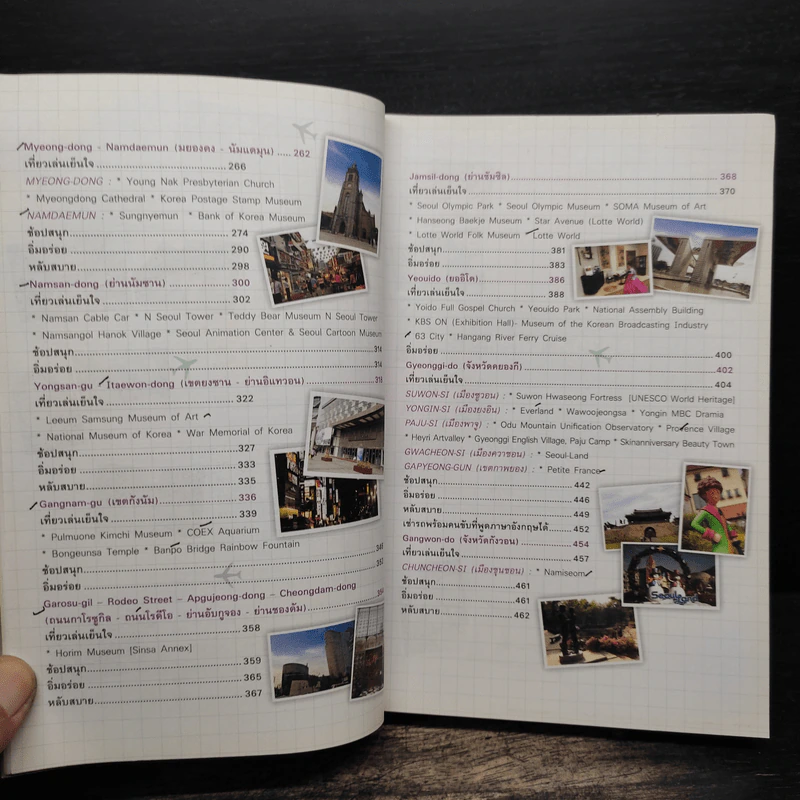 Myeong-dong - Namdaemun (มยองดง - นัมแดมุน) ..... 262
เที่ยวเล่นเย็นใจ ........................ 266
MYEONG-DONG : * Young Nak Presbyterian Church
* Myeongdong Cathedral * Korea Postage Stamp Museum
NAMDAEMUN : * Sungnyemun * Bank of Korea Museum
ช้อปสนุก........................ 274
อิ่มอร่อย ........................ 290
หลับสบาย ........................ 298
Namsan-dong (ย่านนัมซาน)........................ 300
เที่ยวเล่นเย็นใจ ........................ 302
* Namsan Cable Car * N Seoul Tower * Teddy Bear Museum N Seoul Tower
* Namsangol Hanok Village * Seoul Animation Center & Seoul Cartoon Museum
ช้อปสนุก........................ 314
อิ่มอร่อย ........................ 314
Yongsan-gu - Itaewon-dong (เขตยงซาน - ย่านอิแทวอน)
เที่ยวเล่นเย็นใจ ........................ 322
* Leeum Samsung Museum of Art
* National Museum of Korea * War Memorial of Korea
ช้อปสนุก........................ 327
อิ่มอร่อย ........................ 333
หลับสบาย ........................ 335
Gangnam-gu (เขตกังนัม)........................ 336
เที่ยวเล่นเย็นใจ ........................ 339
* Pulmuone Kimchi Museum * COEX Aquarium
* Bongeunsa Temple * Banpo Bridge Rainbow Fountain
ช้อปสนุก........................
อิ่มอร่อย ........................
Garosu-gil - Rodeo Street - Apgujeong-dong - Cheongdam-dong
(ถนนกาโรซูกิล - ถนนโรดีโอ - ย่านอับกูจอง - ย่านชองดัม)
เที่ยวเล่นเย็นใจ ........................ 358
* Horim Museum [Sinsa Annex]
ช้อปสนุก........................ 359
อิ่มอร่อย ........................ 365
หลับสบาย........................ 367
Jamsil-dong (ย่านชัมซิล)........................ 368
เที่ยวเล่นเย็นใจ........................ 370
* Seoul Olympic Park * Seoul Olympic Museum * SOMA Museum of Art
* Hanseong Baekje Museum * Star Avenue (Lotte World)
* Lotte World Folk Museum * Lotte World
ช้อปสนุก........................ 381
อิ่มอร่อย ........................ 383
Yeouido (ยออีโด)........................ 386
เที่ยวเล่นเย็นใจ ........................ 388
* Yoido Full Gospel Church * Yeouido Park * National Assembly Building
* KBS ON (Exhibition Hall)- Museum of the Korean Broadcasting Industry
* 63 City * Hangang River Ferry Cruise
อิ่มอร่อย ........................ 400
Gyeonggi-do (จังหวัดคยองกี)........................ 402
เที่ยวเล่นเย็นใจ........................ 404
SUWON-SI (เมืองซูวอน) : * Suwon Hwaseong Fortress [UNESCO World Heritage]
YONGIN-SI (เมืองยงอิน) : * Everland * Wawoojeongsa * Yongin MBC Dramia
PAJU-SI (เมืองพาจู) : * Odu Mountain Unification Observatory * Provence Village
* Heyri Artvalley * Gyeonggi English Village, Paju Camp * Skinanniversary Beauty Town
GWACHEON-SI (เมืองควาชอน) : * Seoul-Land
GAPYEONG-GUN (เขตกาพยอง) : * Petite France
ช้อปสนุก........................ 442
อิ่มอร่อย ........................ 446
หลับสบาย........................ 449
เช่ารถพร้อมคนขับที่พูดภาษาอังกฤษได้........ 452
Gangwon-do (จังหวัดกังวอน)........................ 454
เที่ยวเล่นเย็นใจ........................ 457
CHUNCHEON-SI (เมืองชุนชอน) : * Namiseom
ช้อปสนุก........................ 461
อิ่มอร่อย ........................ 461
หลับสบาย........................ 462